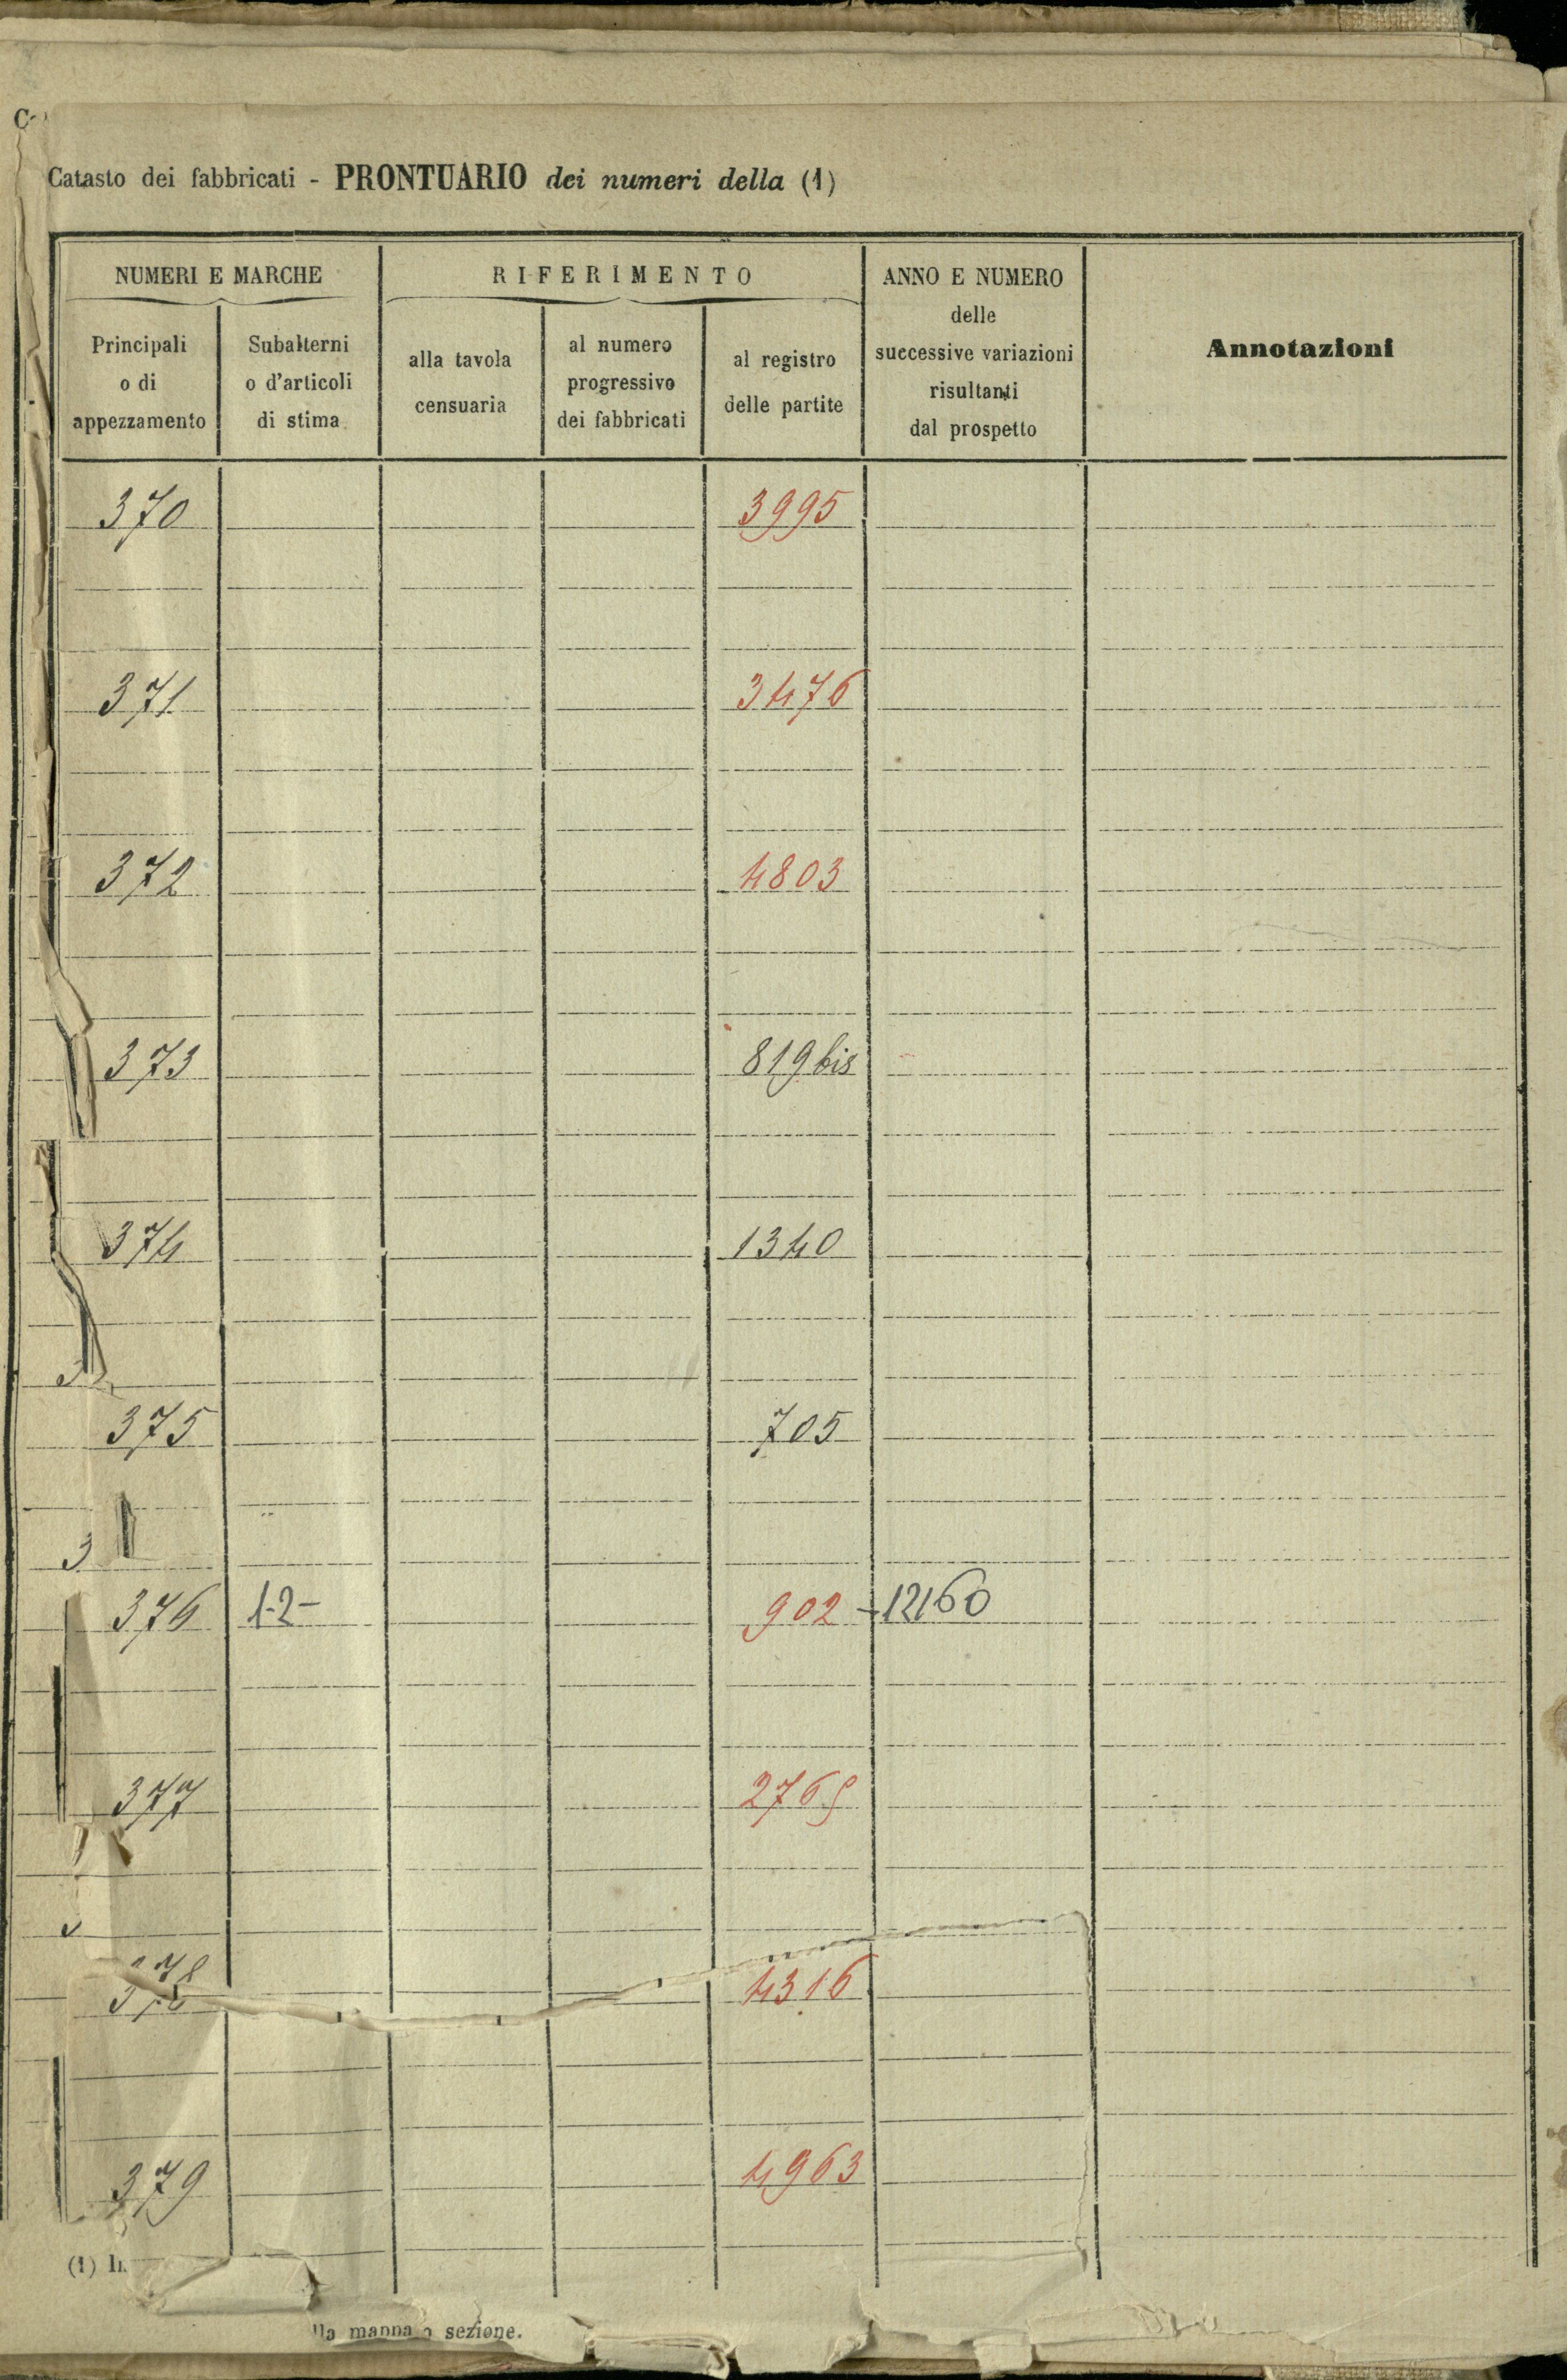 Catasto dei fabbricati - PRONTUARIO dei numeri della (1)
NUMERI E MARCHE
RIFERIMENTO
ANNO E NUMERO
delle
successive variazioni
risultanti
dal prospetto
Annotazioni
Principali
o di
appezzamento
Subalterni
o d'articoli
di stima
alla tavola
censuaria
al numero
progressivo
dei fabbricati
al registro
delle partite
370 3995
371 3476
372 4803
373 819 bis
374 1340
375 705
376 1-2- 902 -12160
377 2765
378 4316
379 4963
(1)
mappa o sezione.